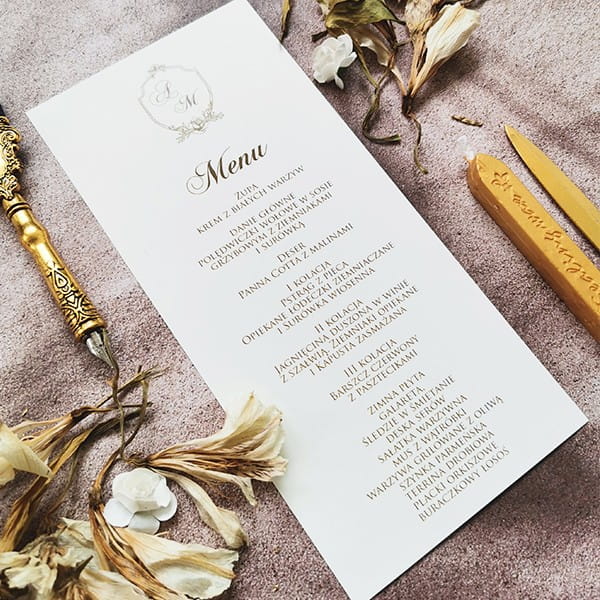 A
M
Menu
Zupa
Krem z białych warzyw
Danie główne
Polędwiczki wołowe w sosie
grzybowym z ziemniakami
i surówką
Deser
Panna Cotta z malinami
I kolacja
Pstrąg z pieca
Opiekane łódeczki ziemniaczane
i surówka wiosenna
II kolacja
Jagnięcina duszona w winie
z szałwią, ziemniaki opiekane
i kapusta zasmażana
III kolacja
Barszcz czerwony
z pasztecikami
Zimna płyta
Galaretki
Śledzie w śmietanie
Deska serów
Sałatka warzywna
Mus z wątróbki
Warzywa grillowane z oliwą
Szynka parmeńska
Terrina drobiowa
Placki orkiszowe
Buraczkowy łosoś